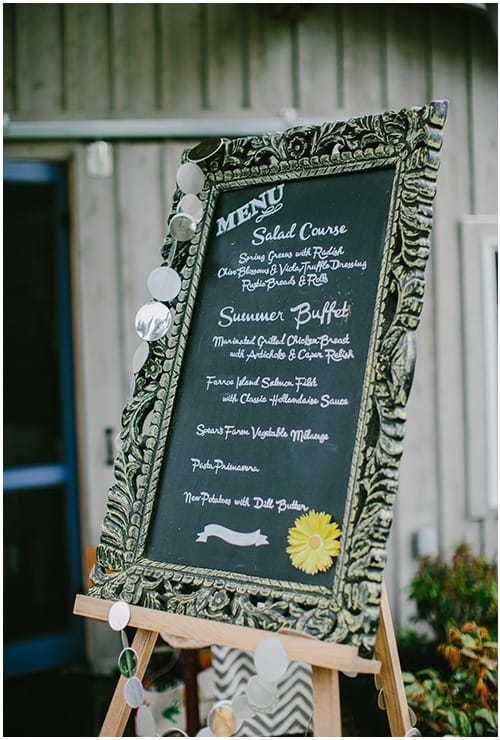 MENU
Salad Course
Spring Greens with Radish
Chive Blossoms & Viola, Truffle Dressing
Rustic Breads & Rolls
Summer Buffet
Marinated Grilled Chicken Breast
with Artichoke & Caper Relish
Farroe Island Salmon Filet
with Classic Hollandaise Sauce
Spear's Farm Vegetable Mélange
Pasta Primavera
New Potatoes with Dill Butter